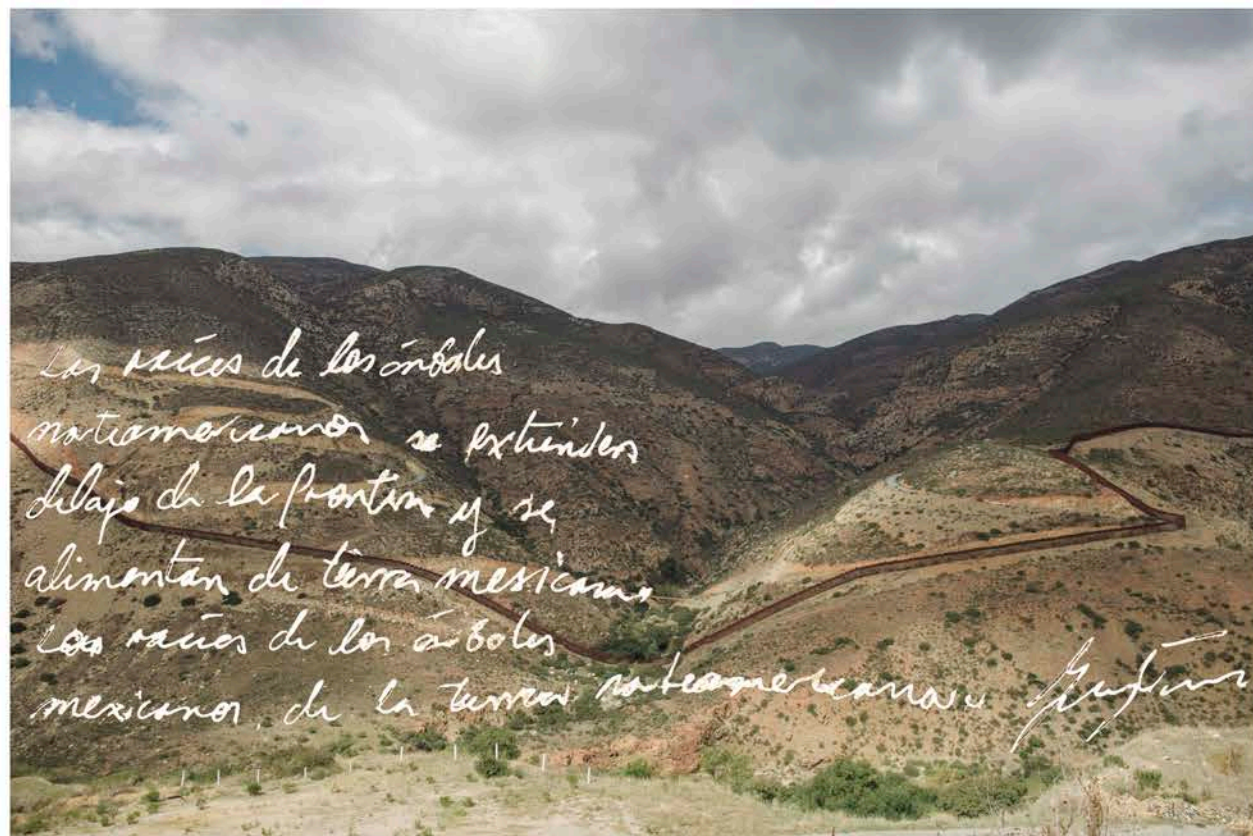 Las raíces de los árboles
norteamericanos se extienden
debajo de la frontera y se
alimentan de tierra mexicana
Las raíces de los árboles
mexicanos, de la tierra norteamericana.